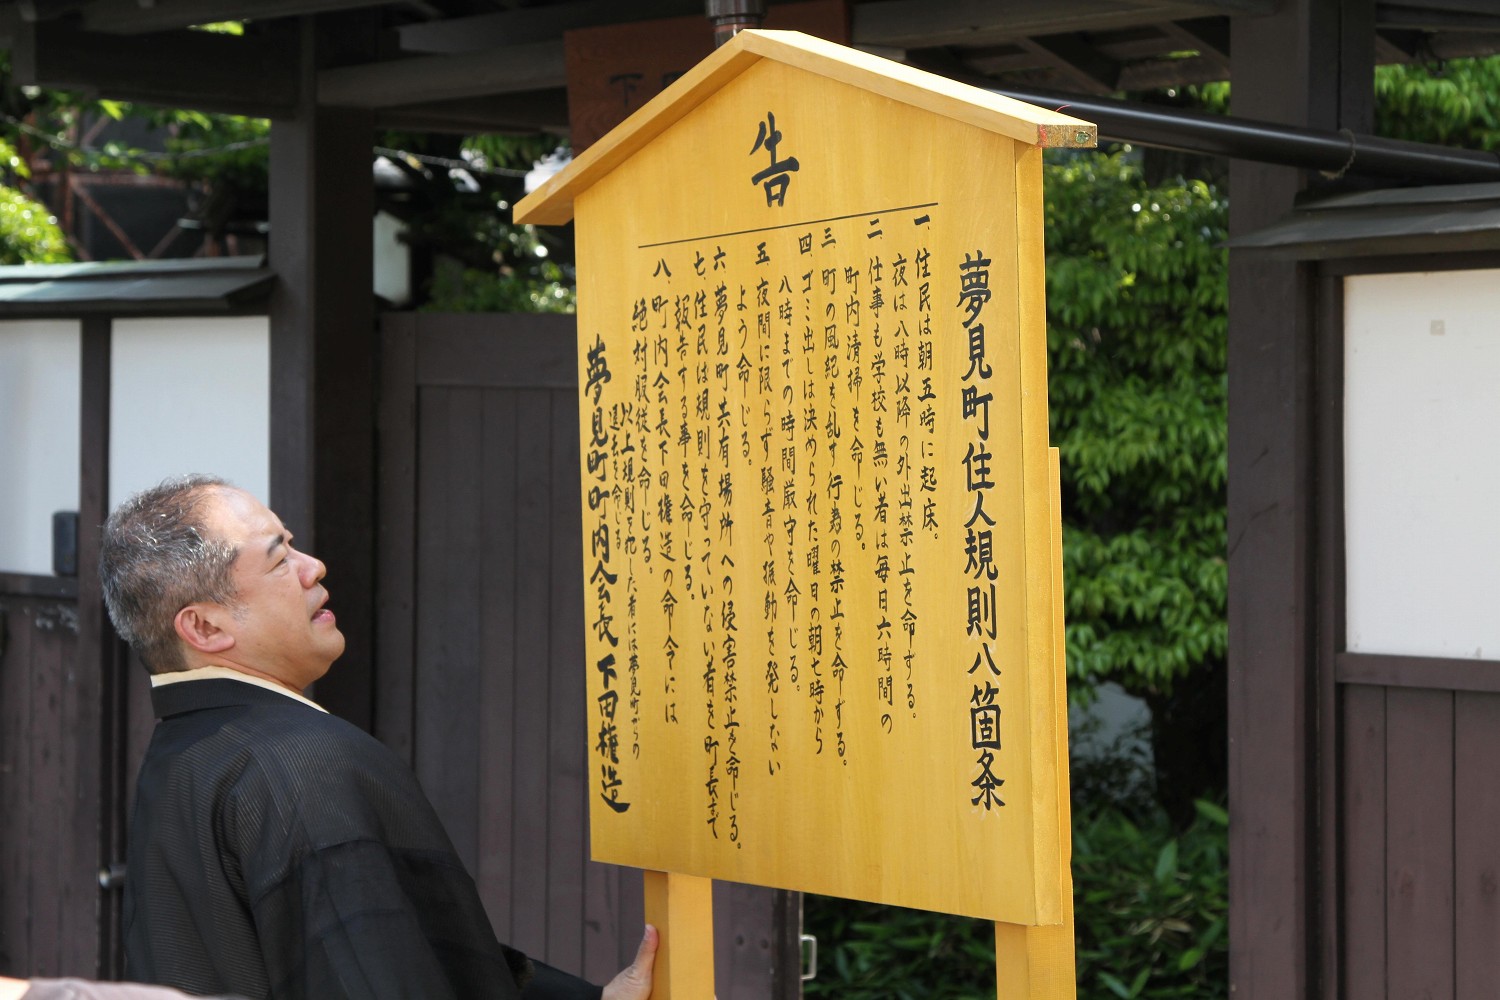 下
告
夢見町住人規則八箇条
一、住民は朝五時に起床。
夜は八時以降の外出禁止を命ずる。
二、仕事も学校も無い者は毎日六時間の
町内清掃を命じる。
三、町の風紀を乱す行為の禁止を命ずる。
四、ゴミ出しは決められた曜日の朝七時から
八時までの時間厳守を命じる。
五、夜間に限らず騒音や振動を発しない
よう命じる。
六、夢見町共有場所への侵害禁止を命じる。
七、住民は規則を守っていない者を町長まで
報告する事を命じる。
八、町内会長下田権造の命令には
絶対服従を命じる。
以上規則を犯した者には夢見町からの
退去を命じる
夢見町町内会長下田権造